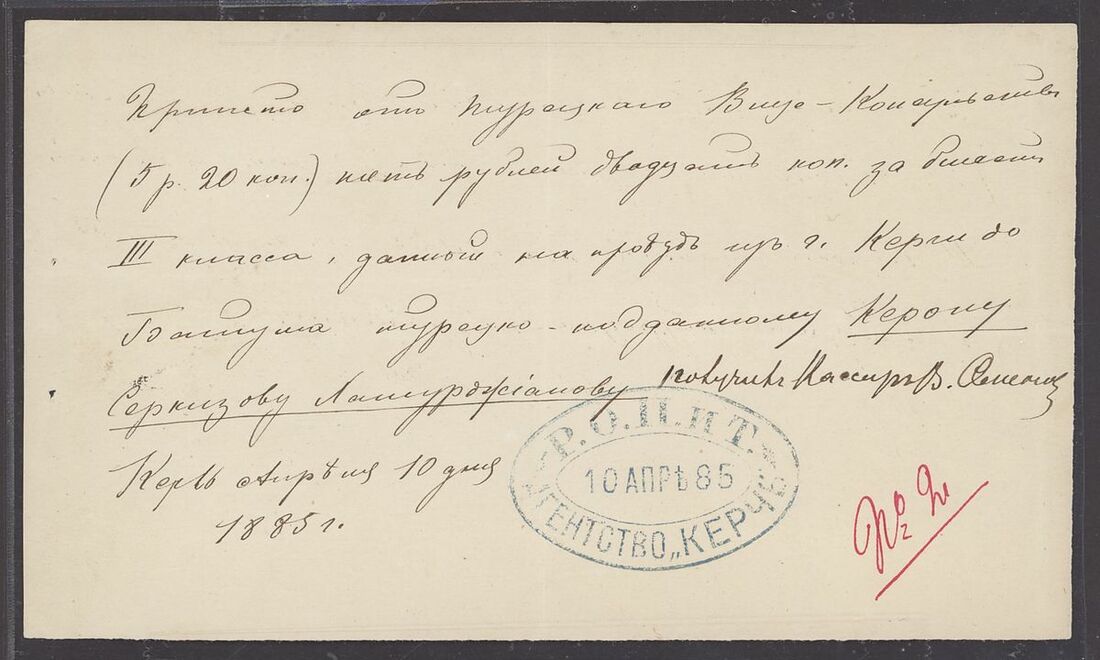 Принято отъ турецкаго Вице-Консульства
(5 р. 20 коп.) пять рублей двадцать коп. за билетъ
III класса, данный на проѣздъ изъ г. Керчи до
Батума турецко-подданному Керопу
СеркизовуЛамурджіанову получилъ Кассиръ В. Семенов
Керчь Апрѣля 10 дня
1885 г.
Р.О.П. и Т.
10 АПРѢ 85
АГЕНТСТВО „КЕРЧЬ"
№ 2